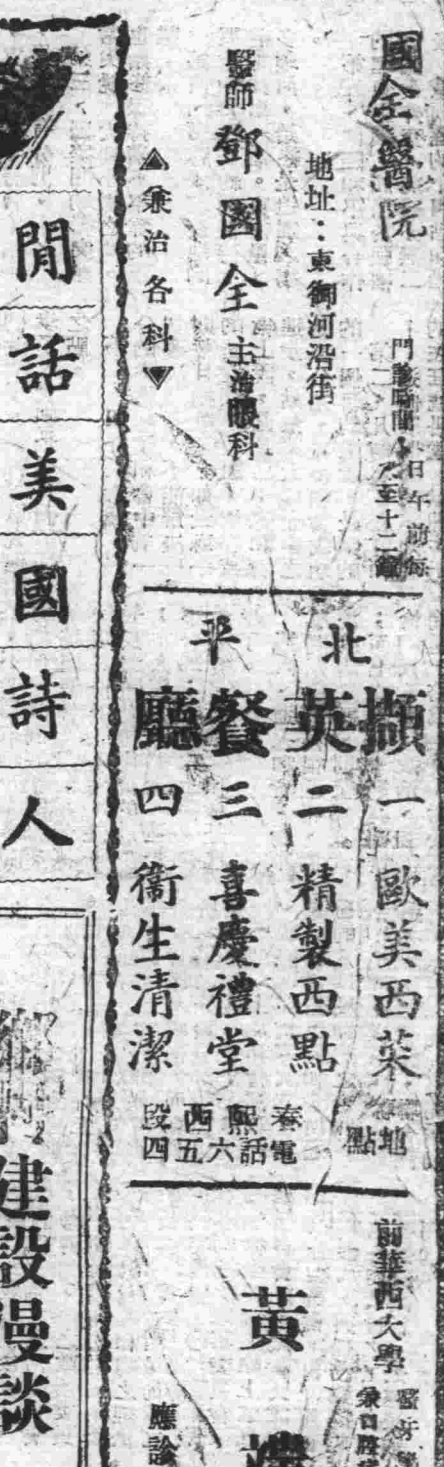 國全醫院
門診時間
日午前每
九至十二鐘
地址：東御河沿街
醫師鄧國全主治眼科
▲兼治各科▼
北平
擷英餐廳
一歐美西菜
二精製西點
三喜慶禮堂
四衛生清潔
地點
春熙西段
電話六五四
前華西大學
黃
應診
閒話美國詩人
建設漫談